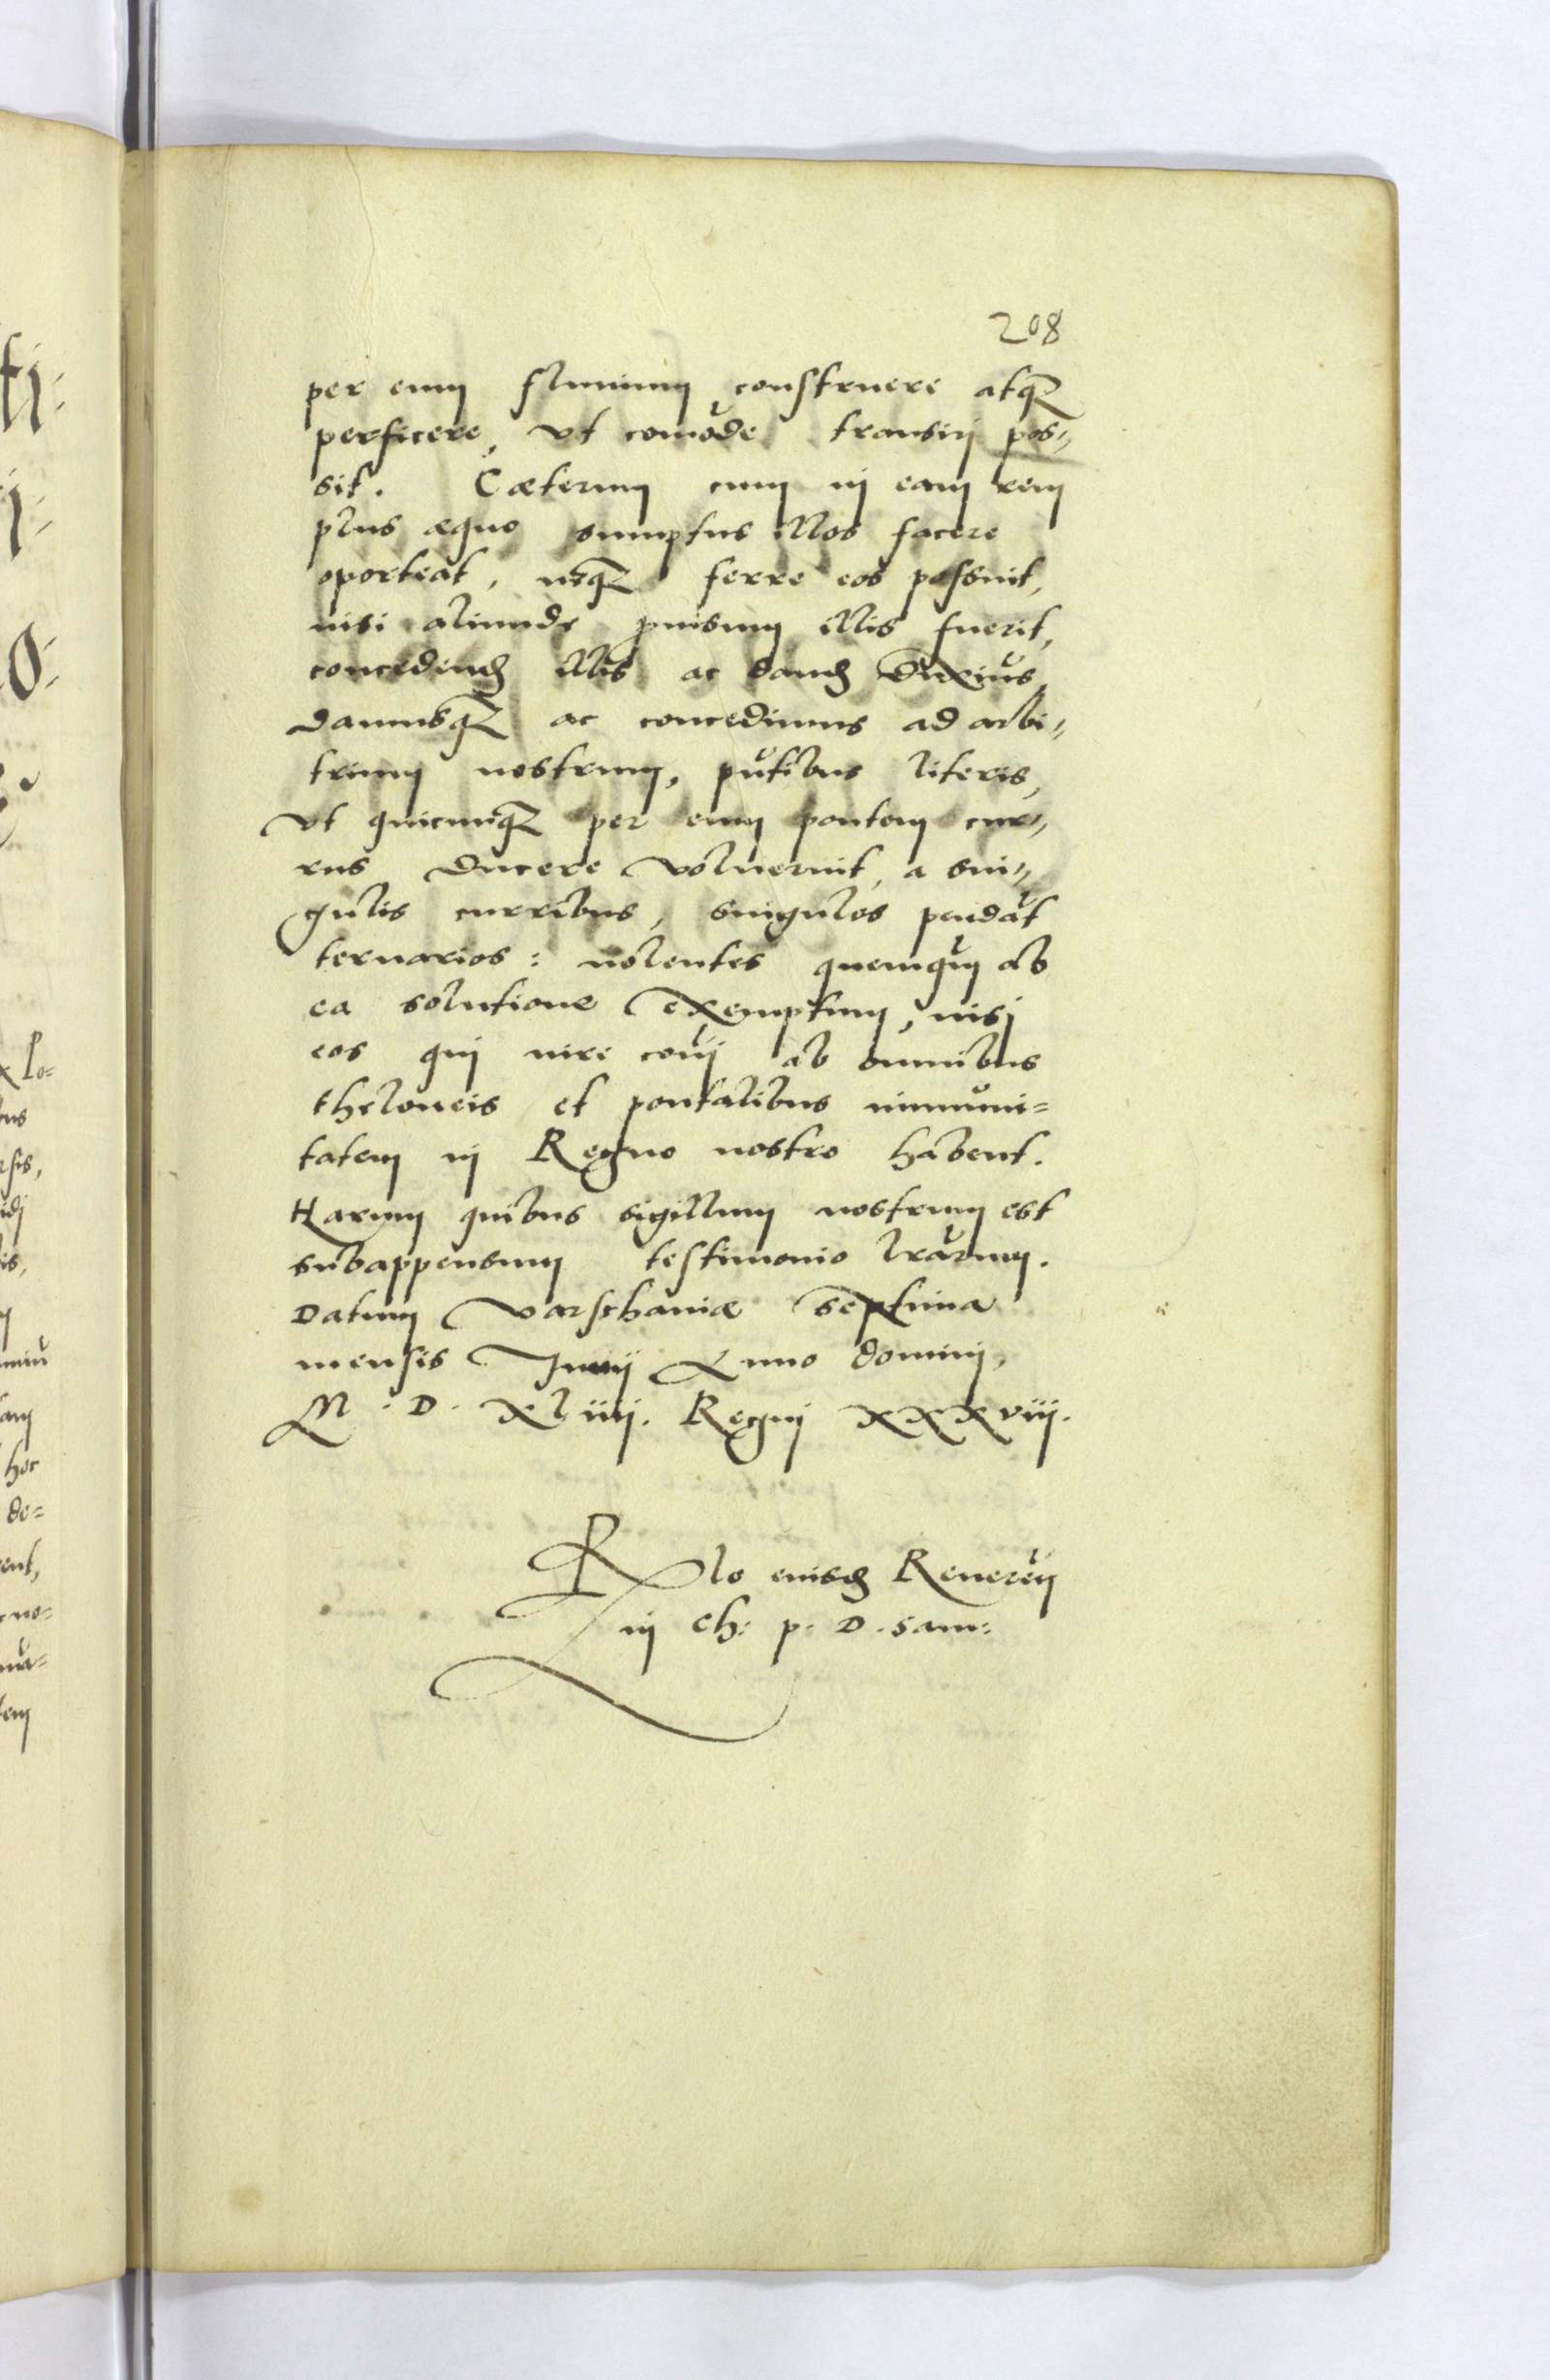 208
per eum fluuium construere atq3
perficere, vt comode transirj pos„
sit. Cæterum cum in eam rem
plus æquo sumptus illos facere
oporteat, neq3 ferre eos possint,
nisi aliunde prouisum illis fuerit,
concedend illis ac dand duximus,
damusq3 ac concedimus ad arbi„
trium nostrum, pntibus literis,
vt quicunq3 per eum pontem cur„
rus ducere voluerint, a sin„
gulis curribus, singulos pendāt
ternarios: nolentes quemqm ab
ea solutione exemptum, nisj
eos quj iure cōj ab omnibus
theloneis et pontalibus immuni=
tatem in Regno nostro habent.
Harum quibus sigillum nostrum est
subappensum testimonio lrārum.
Datum Varschauiæ septima
mensis Junij Anno domini,
M. D. xliiij. Regnj xxxviij.
Rlo eiusd Reueren
in Ch: p. D. sam:
fi-
j-
o-
x Po=
bus
is,
hoc
de=
ent,
no=
ua=
tem